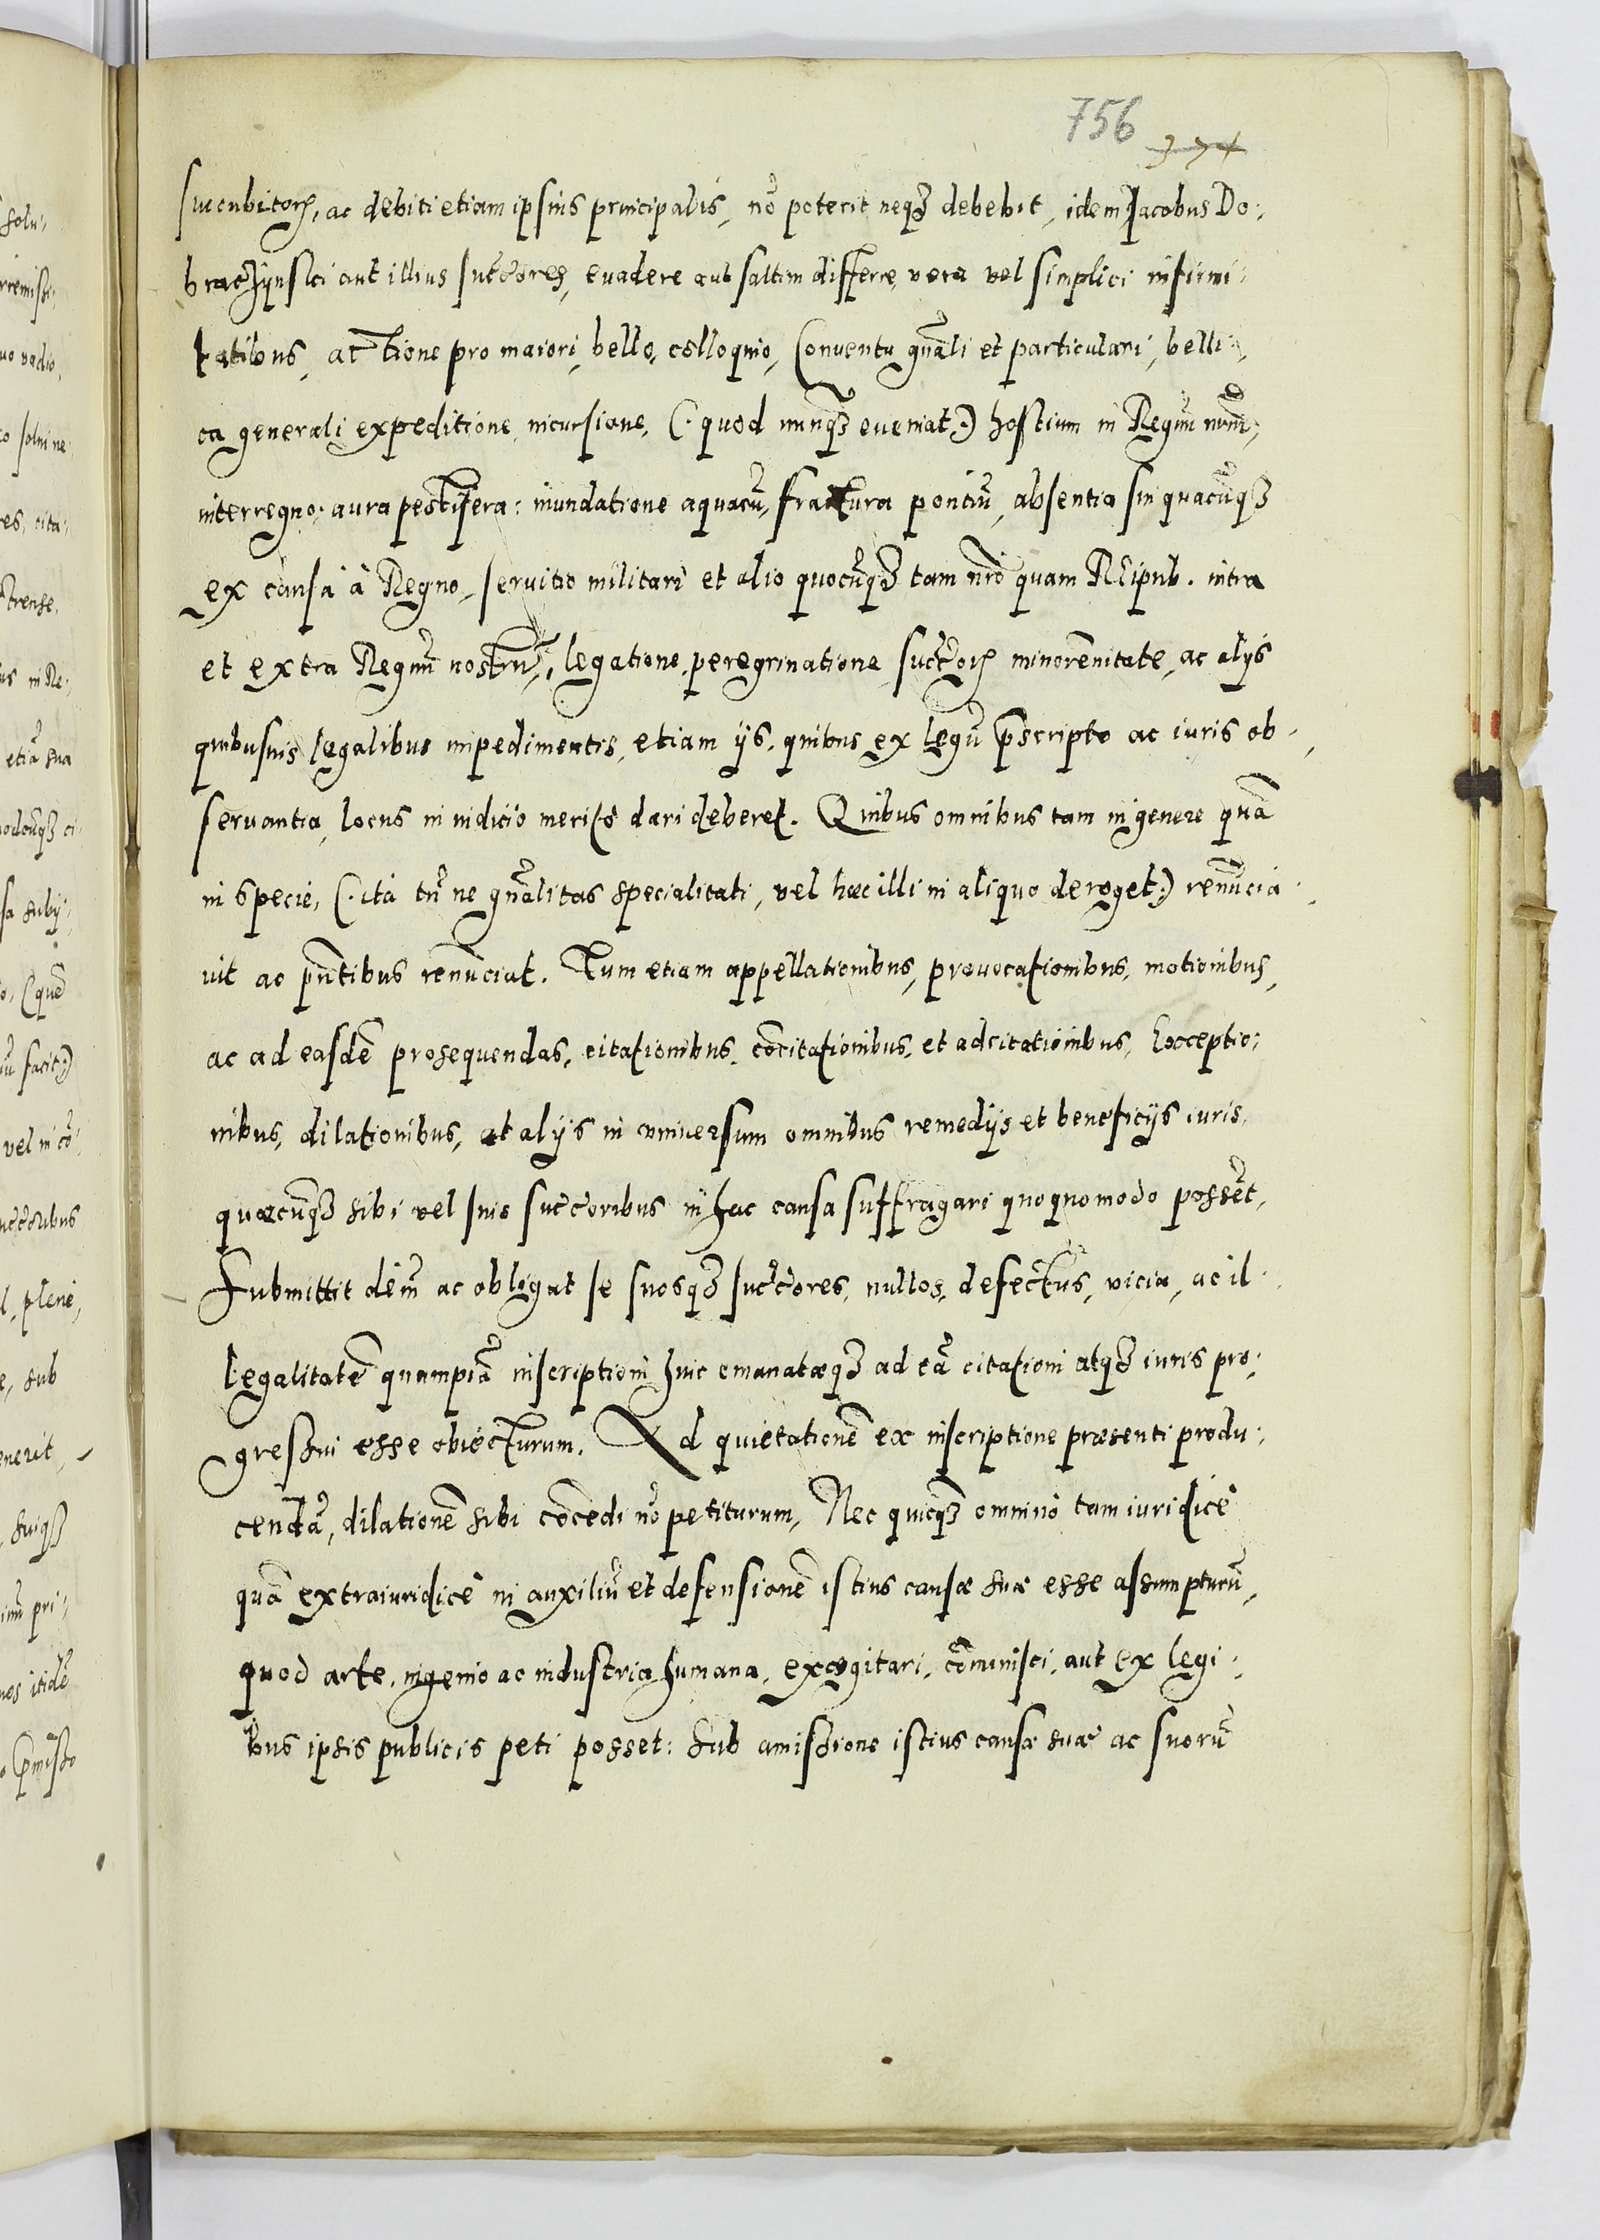 756
374
succubitorꝶ, ac debiti etiam ipsius principalis, nō poterit neqȝ debebit, idem Jacobus Do:
braczÿnski aut illius succ̄ores, euadere aut saltim differre, vera vel simplici infirmi:
tatibus, actione pro maiori, bello, colloquio, Conuentu gnāli et particulari, belli:
ca generali expeditione, incursione, (: quod nunqȝ eueniat :) hostium in Regnū nrūm,
interregno, aura pestifera: inundatione aquarū, fractura pontiū, absentia sua quacūqȝ
ex causa à Regno, seruitio militari et alio quocūqȝ tam nrō quam REipub. intra
et extra Regnū nostrū, legatione, peregrinatione, succ̄orꝶ minorēnitate, ac alijs
quibusuis legalibus impedimentis, etiam ijs, quibus ex legū p̄scripto ac iuris ob:
seruantia, locus in iudicio merito dari deberet. Quibus omnibus tam in genere quā
in specie, (: ita tn̄ ne gnālitas specialitati, vel haec illi in aliquo deroget :) renūcia:
uit ac pn̄tibus renūciat. Tum etiam appellationibus, prouocationibus, motionibus,
ac ad easdē prosequendas, citationibus, cōcitationibus, et adcitationibus, Exceptio:
nibus, dilationibus, at alijs in vniuersum omnibus remedijs et beneficijs iuris,
quæcūqȝ sibi vel suis succ̄oribus in hac causa suffragari quoquomodo possēt,
Submittit dēm ac obligat se suosqȝ succ̄ores, nullos, defectus, vicia, ac il:
legalitatē quampiā inscriptioni huic emanatæqȝ ad eā citationi atqȝ iuris pro:
gressui esse obiecturum. Ad quietationē ex inscriptione præsenti produ:
cendā, dilationē sibi cōcedi nō petiturum, Nec quicqȝ omnino tam iuridicè
quā extraiuridicè in auxiliū et defensionē istius causæ suæ esse assumpturū,
quod arte, ingenio ac industria humana, excogitari, cōminisci, aut ex legi:
bus ipsis publicis peti posset: sub amissione istius causæ suæ ac suorū